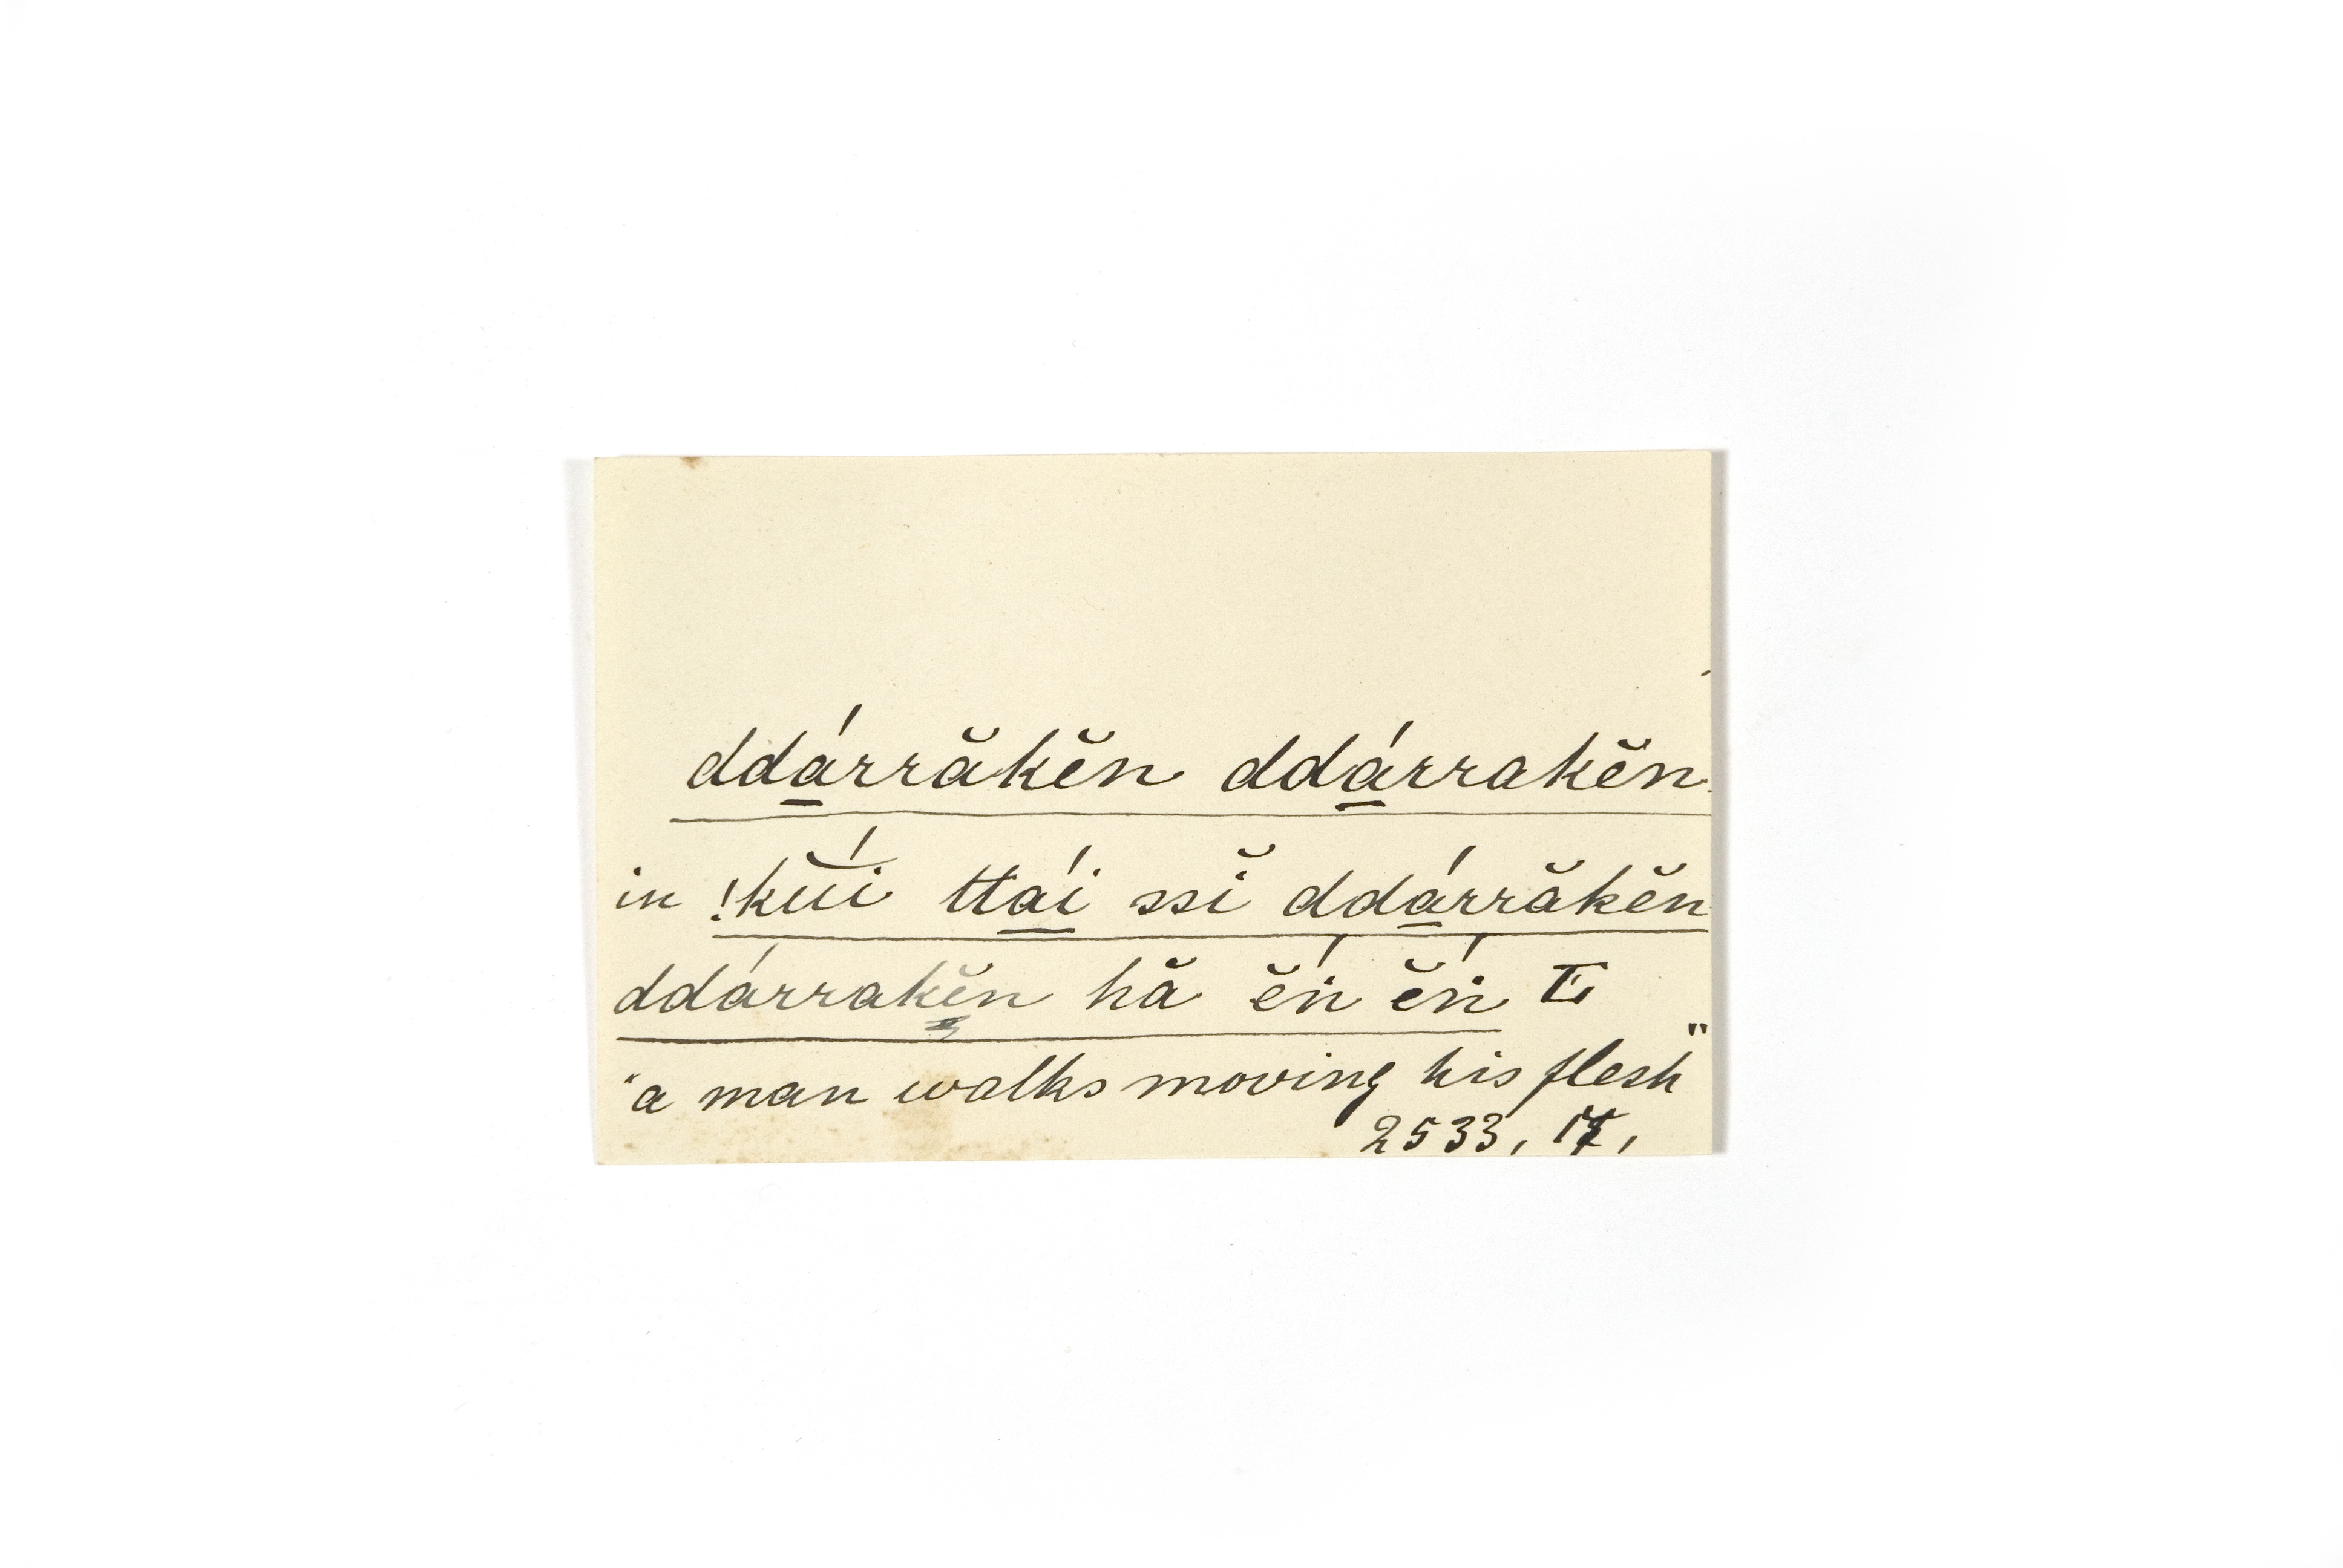 ddá̱rrăkĕn ddá̱rrakĕn
in !kŭí ttá̱i̱ ssĭ ddá̱rrăkĕn
ddárrakĕn hă ĕń ĕń
"a man walks moving his flesh"
2533,